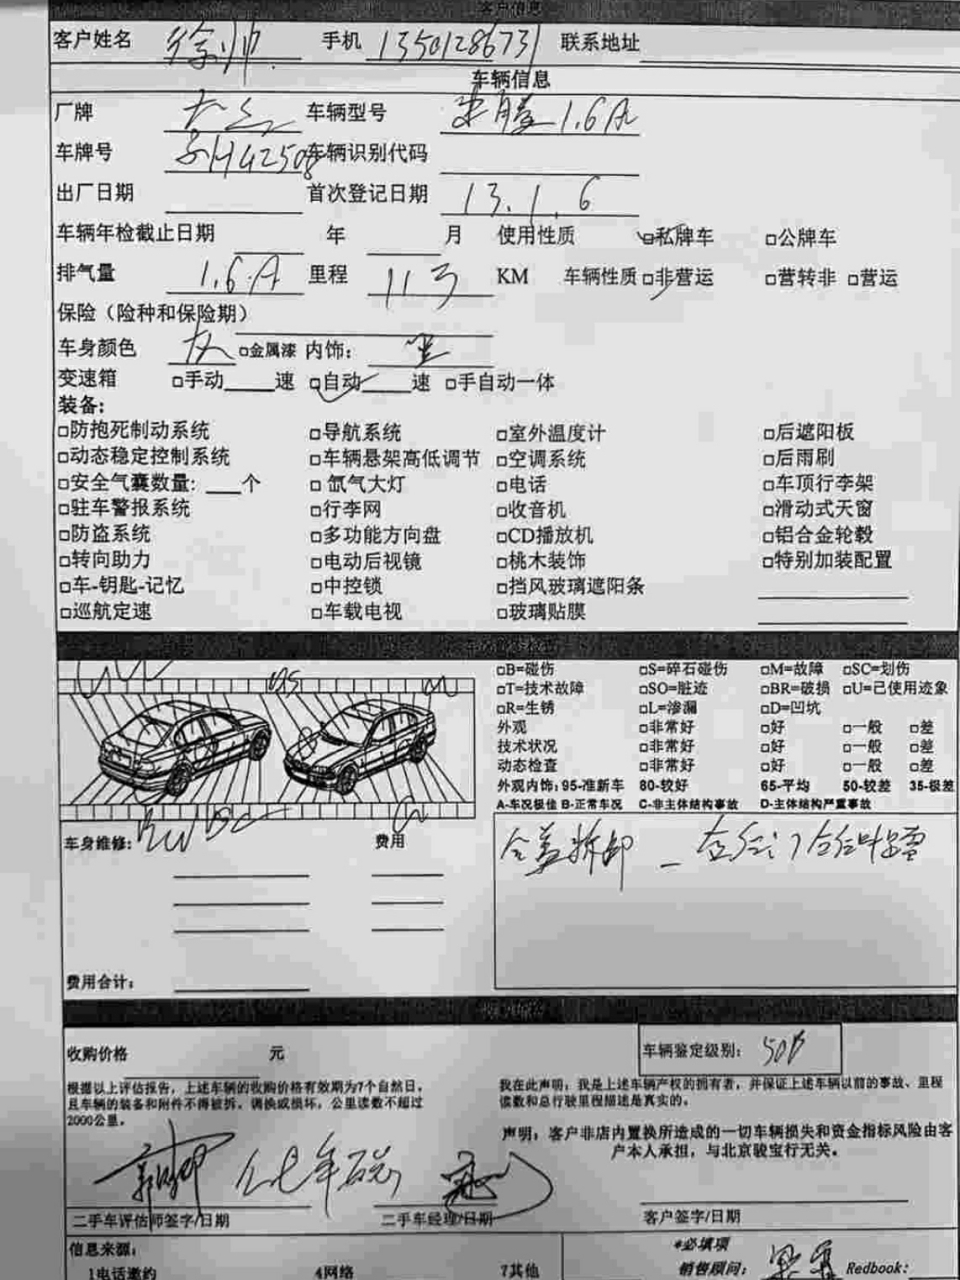 客户信息
客户姓名 徐帅 手机 13501286731 联系地址
车辆信息
厂牌 大众 车辆型号 速腾 1.6A
车牌号 京H42508 车辆识别代码
出厂日期 首次登记日期 13.1.6
车辆年检截止日期 年 月 使用性质 □私牌车 □公牌车
排气量 1.6A 里程 11万 KM 车辆性质 □非营运 □营转非 □营运
保险（险种和保险期）
车身颜色 灰 □金属漆 内饰：
变速箱 □手动____速 □自动____速 □手自动一体
装备：
□防抱死制动系统 □导航系统 □室外温度计 □后遮阳板
□动态稳定控制系统 □车辆悬架高低调节 □空调系统 □后雨刷
□安全气囊数量：___个 □氙气大灯 □电话 □车顶行李架
□驻车警报系统 □行李网 □收音机 □滑动式天窗
□防盗系统 □多功能方向盘 □CD播放机 □铝合金轮毂
□转向助力 □电动后视镜 □桃木装饰 □特别加装配置
□车-钥匙-记忆 □中控锁 □挡风玻璃遮阳条
□巡航定速 □车载电视 □玻璃贴膜
□B=碰伤 □S=碎石碰伤 □M=故障 □SC=划伤
□T=技术故障 □SO=脏迹 □BR=破损 □U=已使用迹象
□R=生锈 □L=渗漏 □D=凹坑
外观 □非常好 □好 □一般 □差
技术状况 □非常好 □好 □一般 □差
动态检查 □非常好 □好 □一般 □差
外观内饰：95-准新车 80-较好 65-平均 50-较差 35-极差
A-车况极佳 B-正常车况 C-非主体结构事故 D-主体结构严重事故
车身维修： 费用
费用合计：
收购价格 元 车辆鉴定级别： 50D
根据以上评估报告，上述车辆的收购价格有效期为7个自然日，
且车辆的装备和附件不得被拆、调换或损坏，公里读数不超过
2000公里。
我在此声明：我是上述车辆产权的拥有者，并保证上述车辆以前的事故、里程
读数和总行驶里程描述是真实的。
声明：客户非店内置换所造成的一切车辆损失和资金指标风险由客
户本人承担，与北京骏宝行无关。
二手车评估师签字/日期 二手车经理/日期 客户签字/日期
信息来源：
1电话邀约 4网络 7其他
*必填项
销售顾问： Redbook: